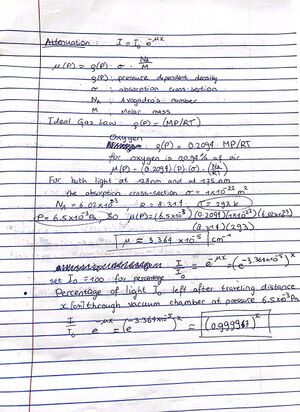 Attenuation : I = I₀ e^-μx
μ(P) = ρ(P) · σ · NA/M
ρ(P) : pressure dependent density
σ : absorption cross-section
NA : Avogadro's number
M : Molar mass
Ideal Gas Law : ρ(P) = (MP/RT)
Oxygen
ρ(P) = 0.2094 · MP/RT
for oxygen is 20.94% of air
μ(P) = (0.2094) · (P) · (σ) · (NA/RT)
For both light at 128nm and at 175nm
the absorption cross-section σ = 1×10^-22
NA = 6.02×10^23 , R = 8.314 , T = 293 K
P = 6.5×10^-3 Pa, so μ(P) = (6.5×10^-3)(0.2094)(1×10^-22)(6.02×10^23)
(8.314)(293)
μ ≈ 3.364 ×10^-5 cm^-1
I/I₀ = e^-μx = (e^-3.364×10^-5)^x
set In = 100 for percentage
Percentage of light I₀ left after traveling distance
x [cm] through vacuum chamber at pressure 6.5×10^-3 Pa
I/I₀ = e^-μx = (e^-3.364×10^-5)^x ≈ (0.999967)^x